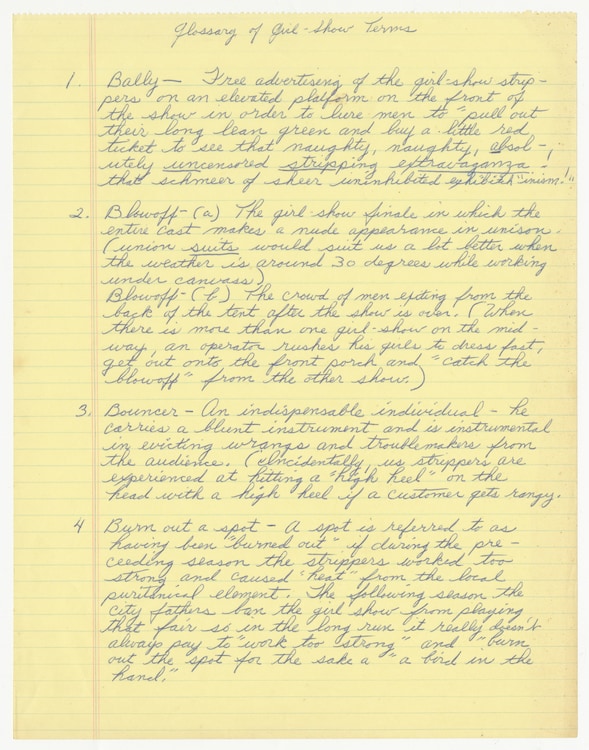 Glossary of Girl-Show Terms
1. Bally — Free advertising of the girl-show strip-
pers on an elevated platform on the front of
the show in order to lure men to "pull out
their long lean green and buy a little red
ticket to see that naughty, naughty, absol-
utely uncensored stripping extravaganza!
that schmeer of sheer uninhibited exhibitionism!"
2. Blowoff - (a) The girl-show finale in which the
entire cast makes a nude appearance in unison.
(union suits would suit us a lot better when
the weather is around 30 degrees while working
under canvass)
Blowoff - (b) The crowd of men exiting from the
back of the tent after the show is over. (When
there is more than one girl-show on the mid-
way, an operator rushes his girls to dress fast,
get out onto the front porch and "catch the
blowoff" from the other show.)
3. Bouncer — An indispensable individual - he
carries a blunt instrument and is instrumental
in evicting wrangs and troublemakers from
the audience. (Incidentally, us strippers are
experienced at hitting a "high heel" on the
head with a high heel if a customer gets rangy.
4 Burn out a spot — A spot is referred to as
having been "burned out" if during the pre-
ceeding season the strippers worked too
strong and caused "heat" from the local
puritanical element. The following season the
city fathers ban the girl show from playing
that fair so in the long run it really doesn't
always pay to "work too strong" and "burn
out the spot for the sake a "a bird in the
hand."